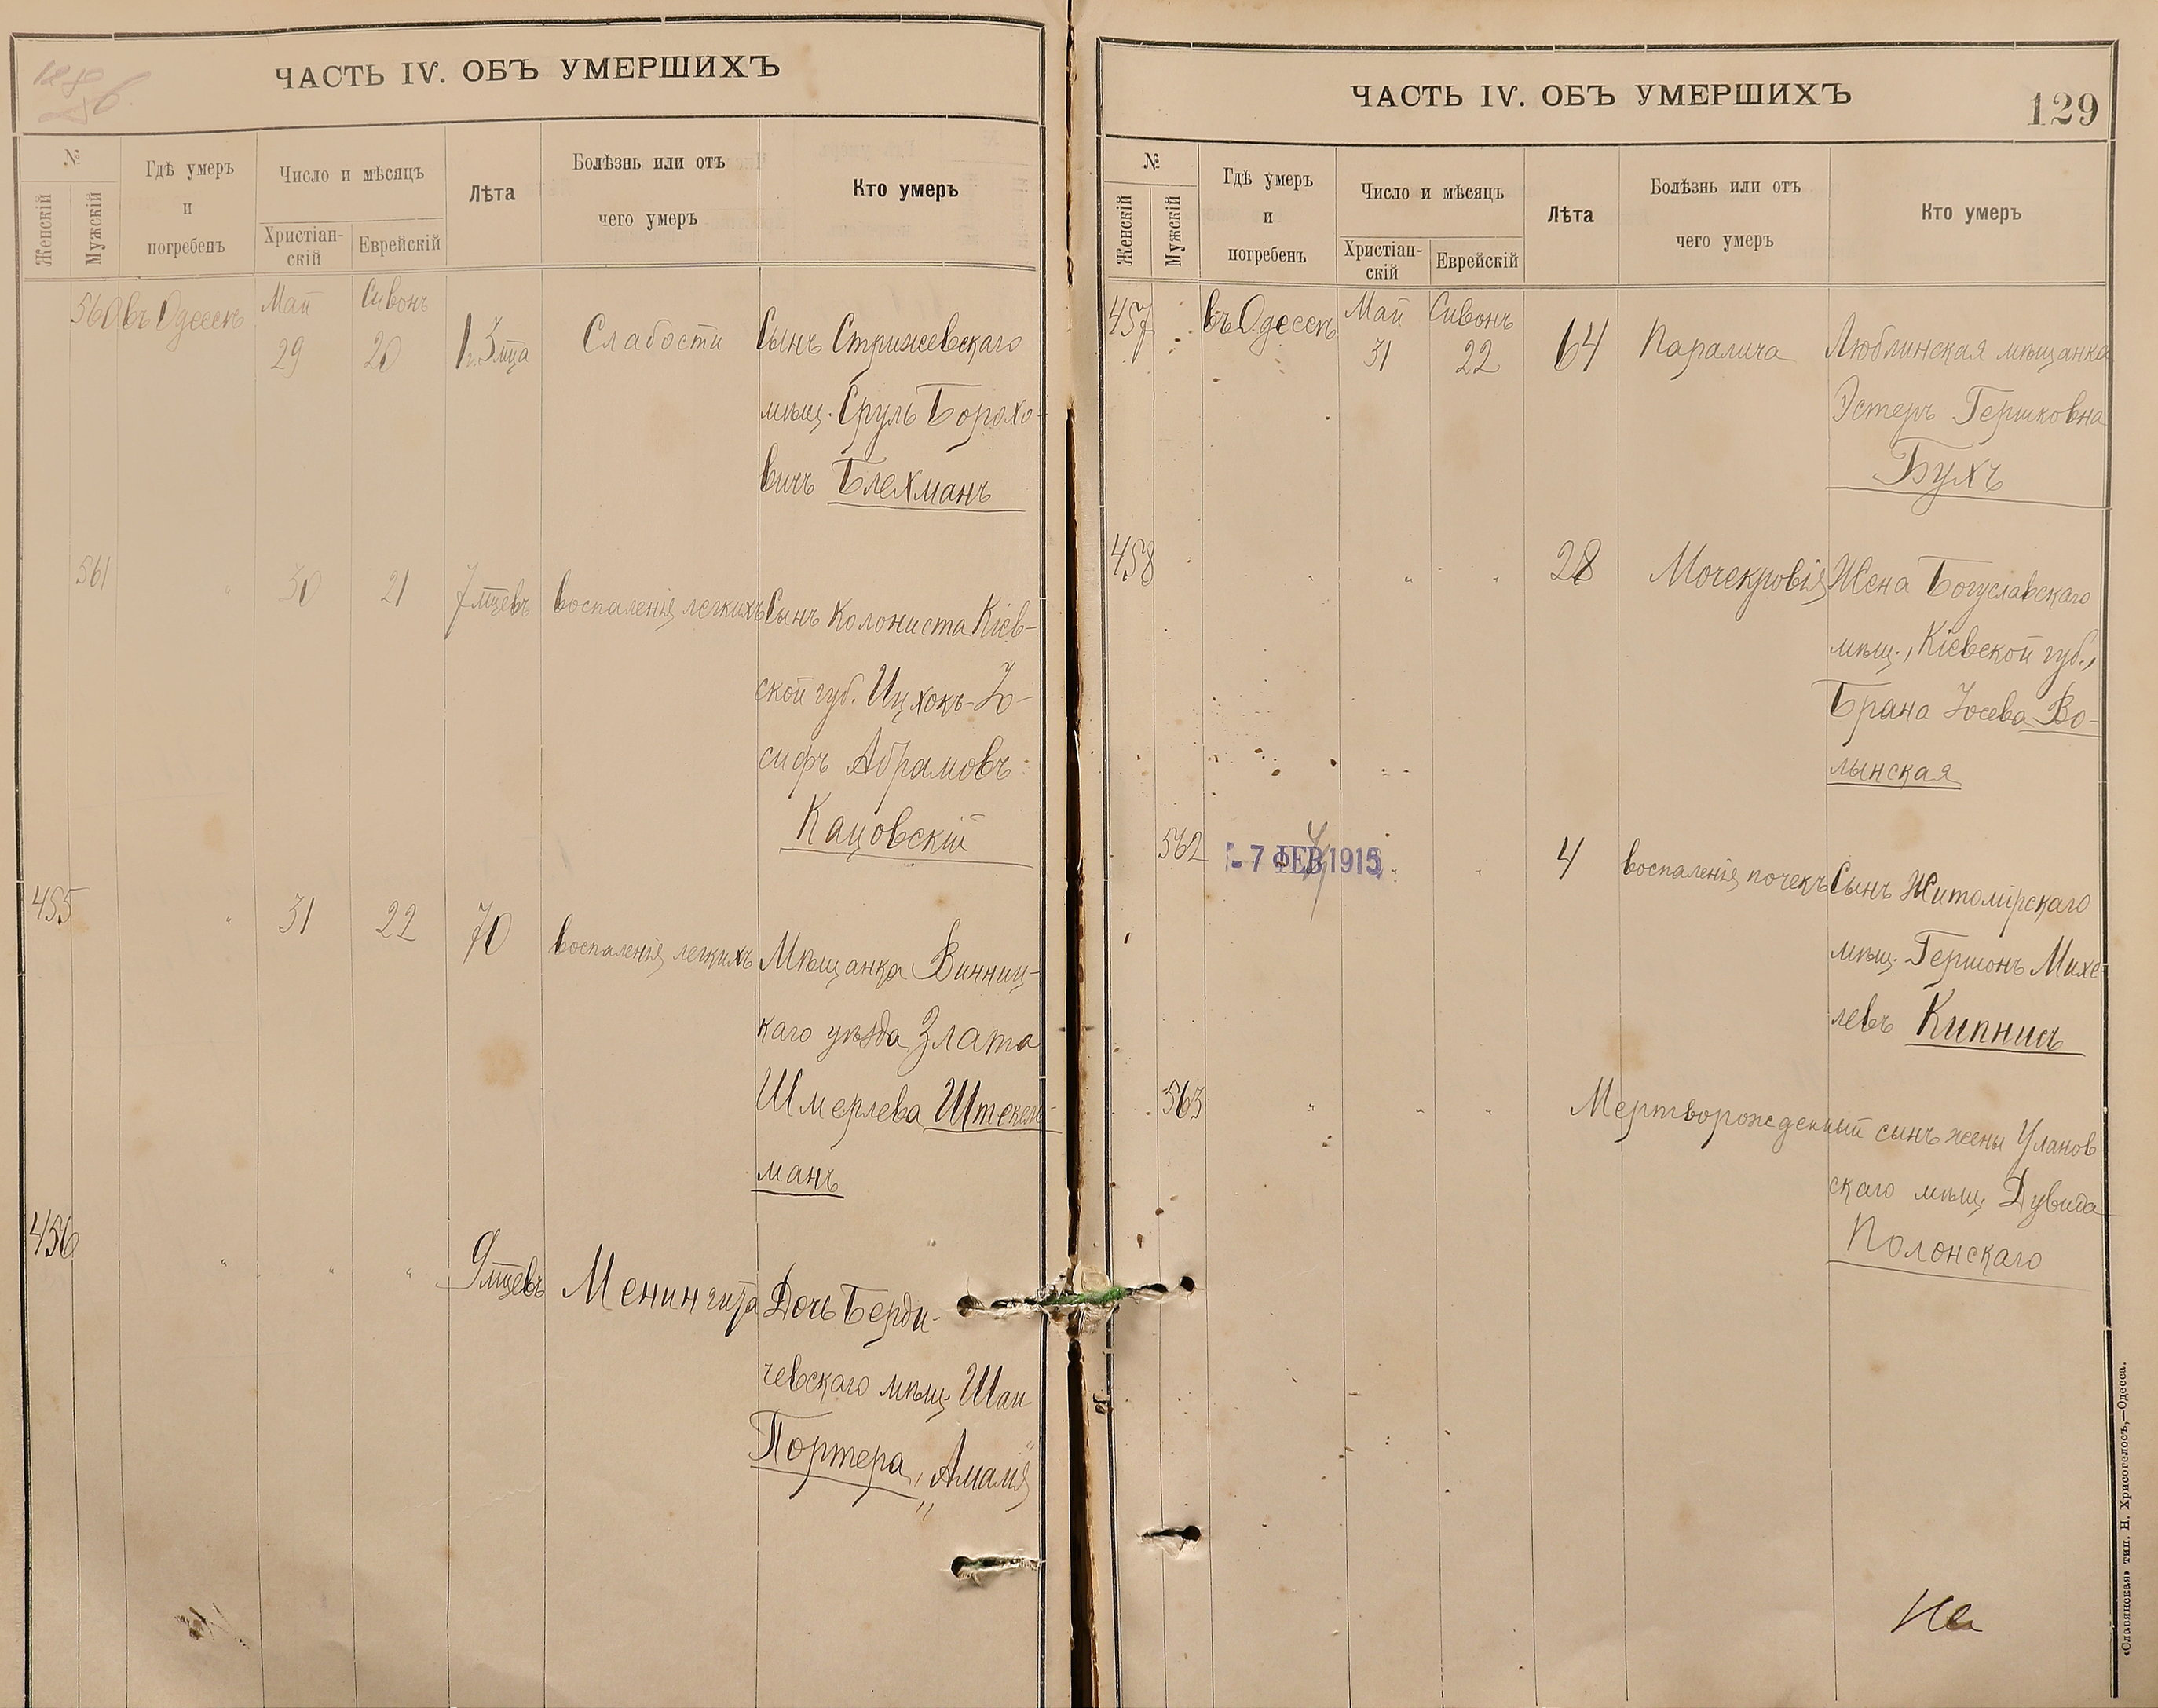 ЧАСТЬ IV. ОБЪ УМЕРШИХЪ
№
Женскій
Мужскій
Гдѣ умеръ
и
погребенъ
Число и мѣсяцъ
Христіан-
скій
Еврейскій
Лѣта
Болѣзнь или отъ
чего умеръ
Кто умеръ
560 въ Одессѣ Май Сивонъ
29 20 1 г. 3 мца Слабости Сынъ Стрижевскаго
мѣщ. Сруль Борохо-
вичъ Блехманъ
561 " 30 21 7 мцевъ воспаленія легкихъ Сынъ Колониста Кіев-
ской губ. Ицхокъ-Іо-
сифъ Абрамовъ
Кацовскій
455 " 31 22 70 воспаленія легкихъ Мѣщанка Винниц-
каго уѣзда Злата
Шмерлева Штекель-
манъ
456 " " " 9 мцевъ Менингита Дочь Берди-
чевскаго мѣщ.
Портера,
ЧАСТЬ IV. ОБЪ УМЕРШИХЪ
129
№
Женскій
Мужскій
Гдѣ умеръ
и
погребенъ
Число и мѣсяцъ
Христіан-
скій
Еврейскій
Лѣта
Болѣзнь или отъ
чего умеръ
Кто умеръ
457 въ Одессѣ Май Сивонъ
31 22 64 Паралича Люблинская мѣщанка
Эстеръ Гершковна
Бухъ
458 " " " 28 Мочекровія Жена Богуславскаго
мѣщ., Кіевской губ.,
Брана Іосева Во-
лынская
562 - 7 ФЕВ 1915 " 4 воспаленія почекъ Сынъ Житомірскаго
мѣщ. Гершонъ Михе-
левъ Кипнисъ
563 " " " Мертворожденный сынъ жены Уланов
скаго мѣщ. Дувида
Полонскаго
«Славянская» тип. Н. Хрисогелосъ,—Одесса.